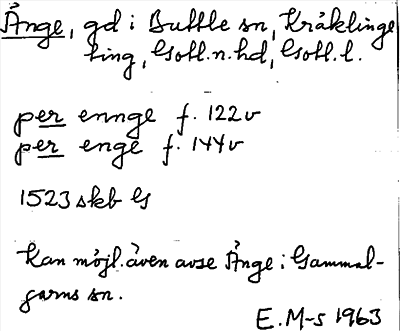 Ånge, gd i Buttle sn, Kräklinge
ting, Gotl. n. hd, Gotl. l.
per ennge f. 122v
per enge f. 144v
1523 skb G
Kan möjl. även avse Ånge i Gammal-
garns sn.
E. M-s 1963